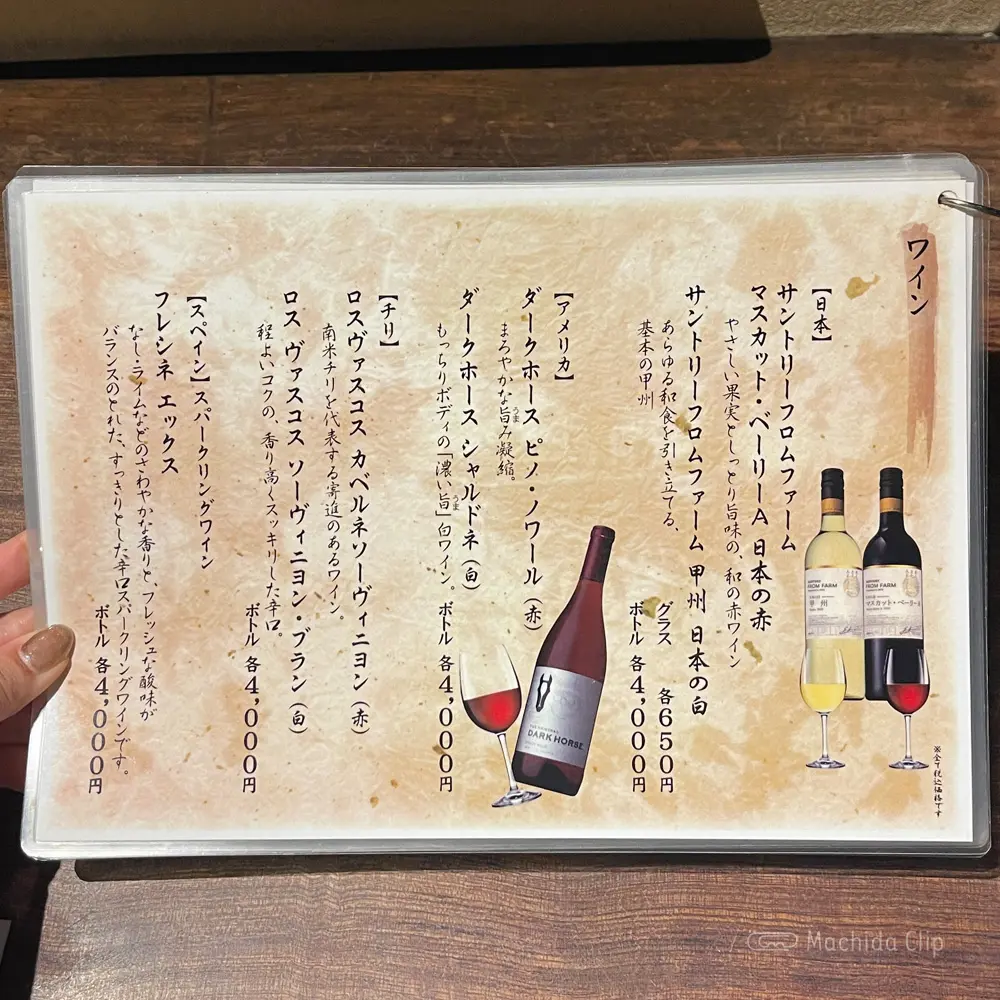 ワイン
【日本】
サントリーフロムファーム
マスカット・ベーリーA 日本の赤
やさしい果実としっとり旨味の、和の赤ワイン
サントリーフロムファーム 甲州 日本の白
あらゆる和食を引き立てる、
基本の甲州
グラス 各650円
ボトル 各4,000円
【アメリカ】
ダークホース ピノ・ノワール(赤)
まろやかな旨み凝縮。
ダークホース シャルドネ(白)
もっちりボディの「濃い旨」白ワイン。
ボトル 各4,000円
【チリ】
ロスヴァスコス カベルネソーヴィニヨン(赤)
南米チリを代表する寄進のあるワイン。
ロス ヴァスコス ソーヴィニヨン・ブラン(白)
程よいコクの、香り高くスッキリした辛口。
ボトル 各4,000円
【スペイン】スパークリングワイン
フレシネ エックス
なし・ライムなどのさわやかな香りと、フレッシュな酸味が
バランスのとれた、すっきりとした辛口スパークリングワインです。
ボトル 各4,000円
※全て税込価格です
FROM FARM
甲州
FROM FARM
マスカット・ベーリーA
DARK HORSE
Machida Clip